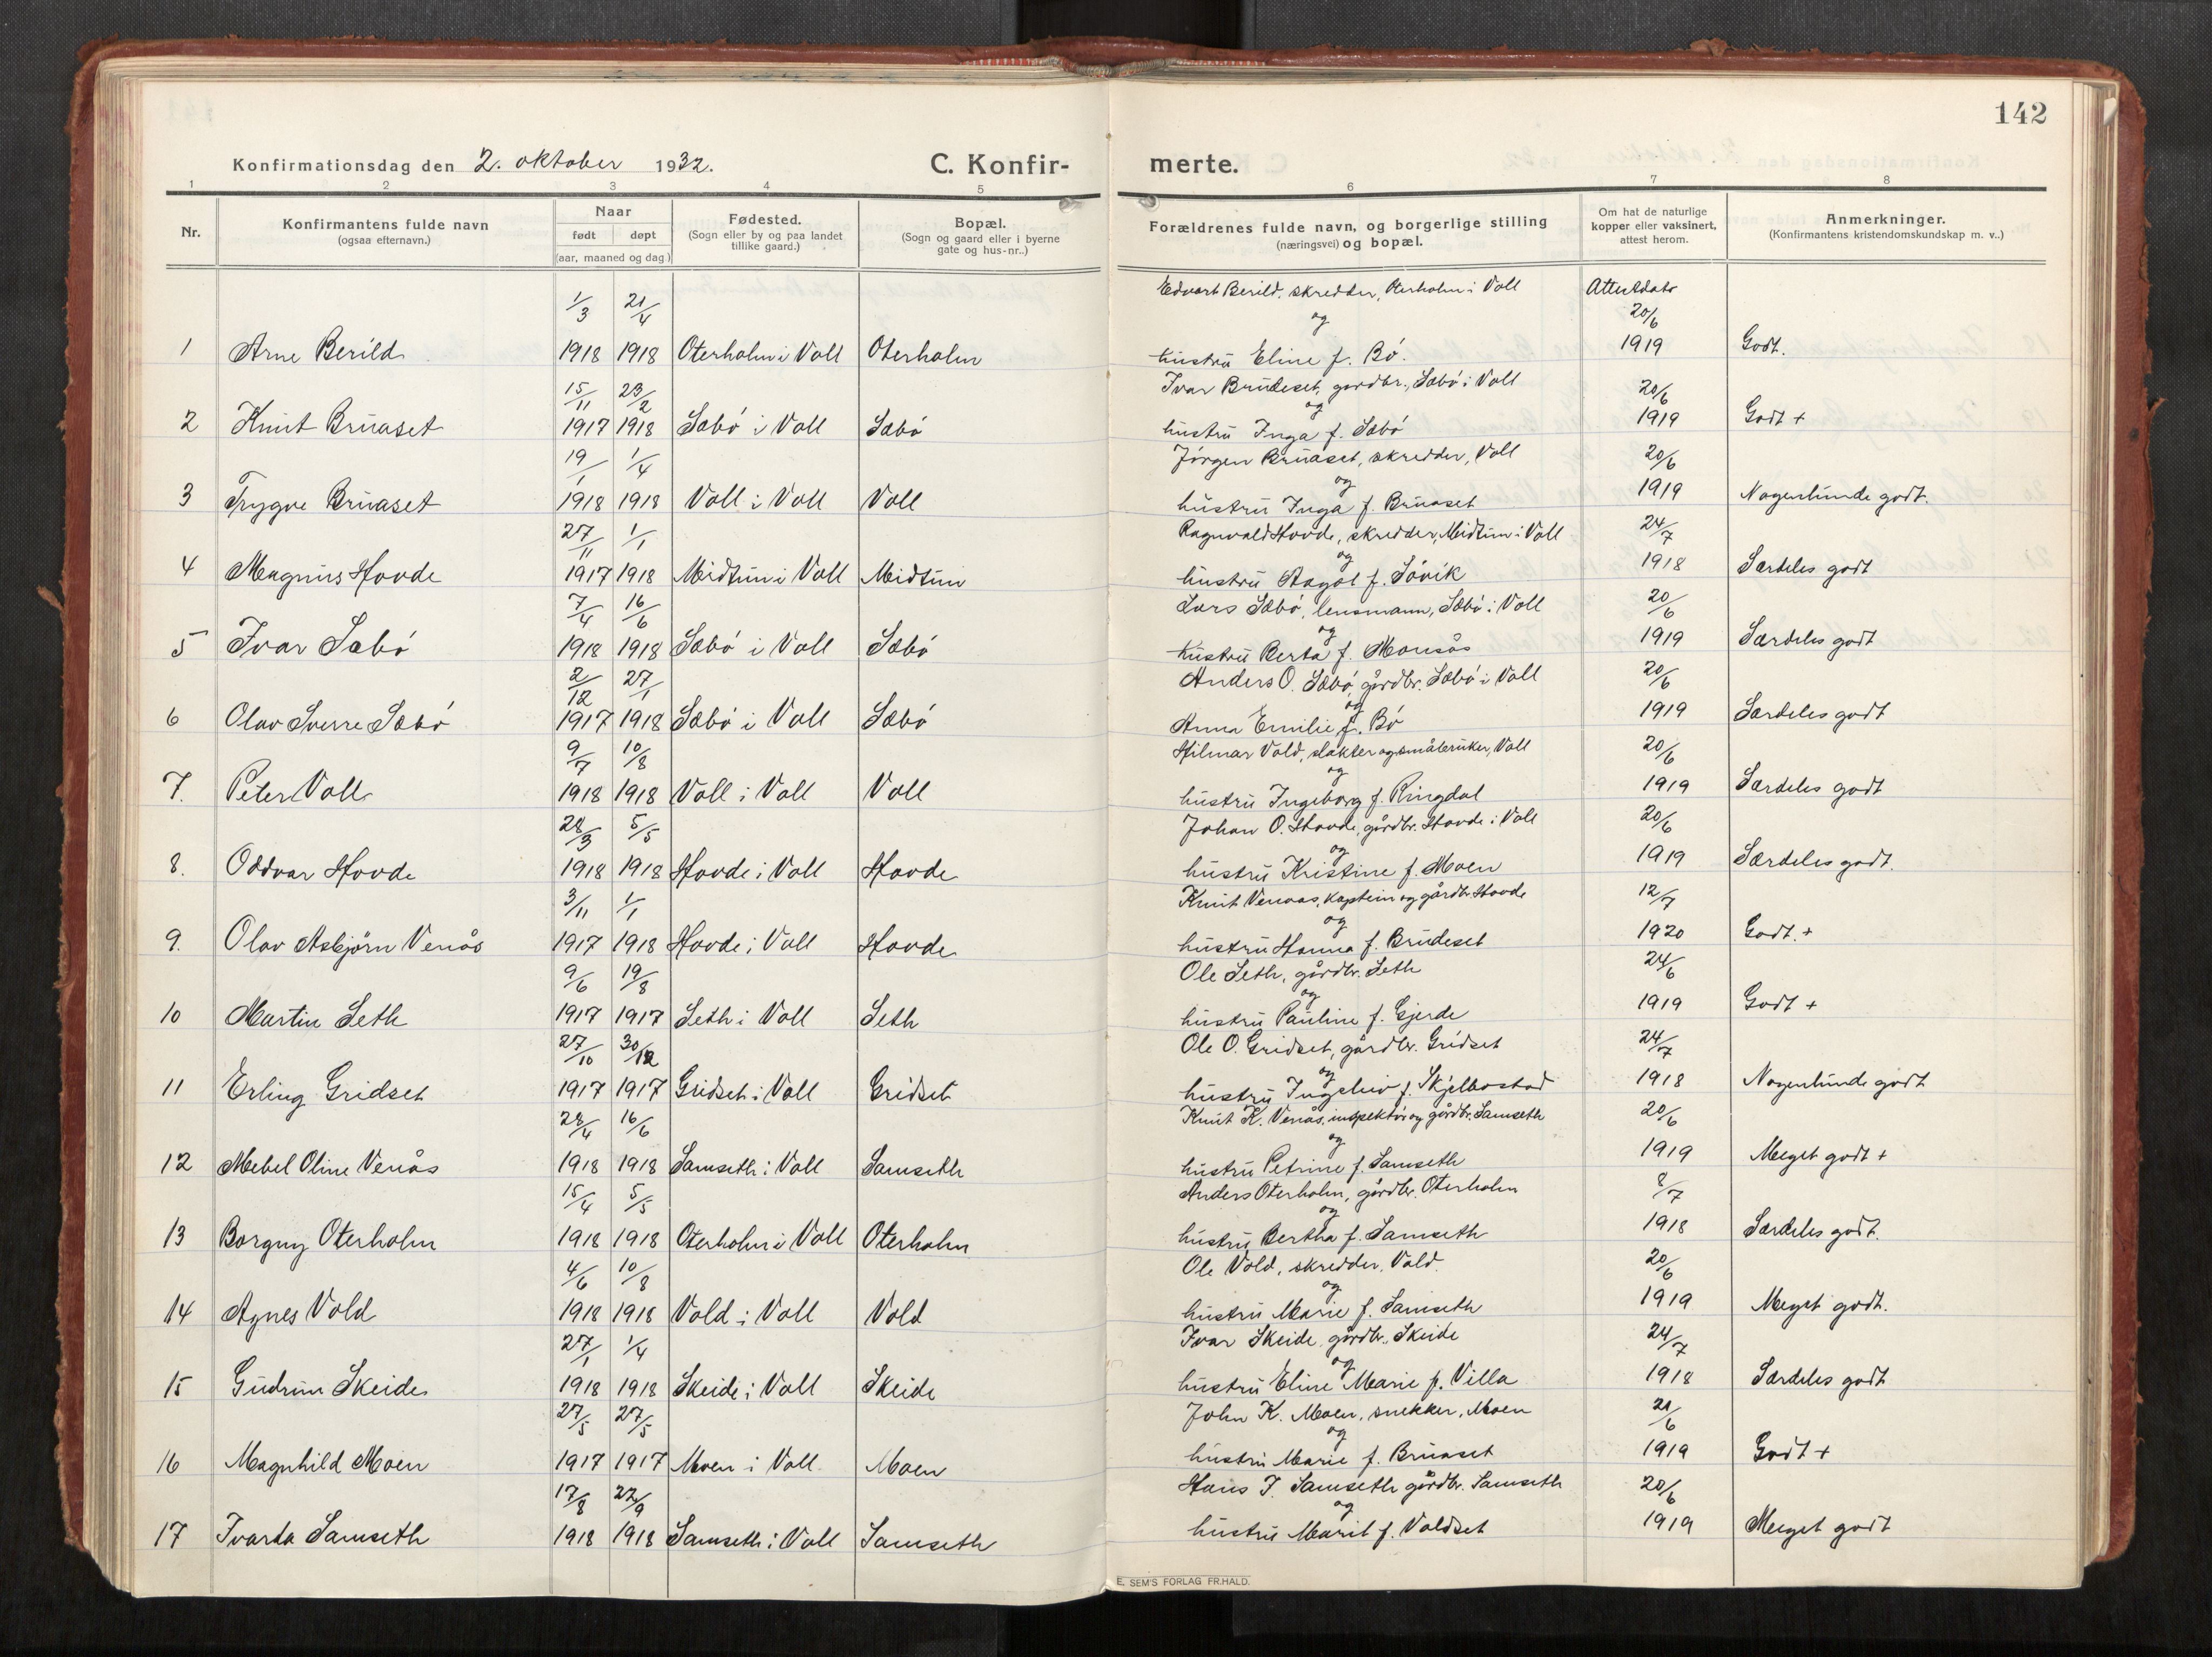 142
Konfirmationsdag den 2. oktober 1932. C. Konfir- merte.
1 2 3 4 5 6 7 8
Nr. Konfirmantens fulde navn (ogsaa efternavn.) Naar født døpt (aar, maaned og dag) Fødested. (Sogn eller by og paa landet tillike gaard.) Bopæl. (Sogn og gaard eller i byerne gate og hus-nr..) Forældrenes fulde navn, og borgerlige stilling (næringsvei) og bopæl. Om hat de naturlige kopper eller vaksinert, attest herom. Anmerkninger. (Konfirmantens kristendomskundskap m. v..)
1/3 21/4 Edvart Berild, skredder, Oterholm i Voll Attestdato
og 20/6
1 Arne Berild 1918 1918 Oterholm i Voll Oterholm hustru Eline f. Bö. 1919 Godt.
15/11 23/2 Ivar Brudeset, gardbr., Sæbö i Voll 20/6
og
2 Knut Bruaset 1917 1918 Sæbö i Voll Sæbö hustru Inga f. Sæbö 1919 Godt +
19/1 1/4 Jörgen Bruaset, skredder, Voll 20/6
og
3 Trygve Bruaset 1918 1918 Voll i Voll Voll hustru Inga f. Bruaset 1919 Nogenlunde godt.
27/11 1/1 Ragnvald Hovde, skredder, Midtun i Voll 24/7
og
4 Magnus Hovde 1917 1918 Midtun i Voll Midtun hustru Aagot f. Sövik 1918 Særdeles godt
7/4 16/6 Lars Sæbö, lensmann, Sæbö i Voll 20/6
og
5 Ivar Sæbö 1918 1918 Sæbö i Voll Sæbö hustru Berta f. Monsås 1919 Særdeles godt
2/12 27/1 Anders O. Sæbö, gårdbr. Sæbö i Voll 20/6
og
6 Olav Sverre Sæbö 1917 1918 Sæbö i Voll Sæbö Anna Emilie f. Bö 1919 Særdeles godt
9/7 10/8 Hilmar Vold, slakter og småbruker, Voll 20/6
og
7. Peter Voll 1918 1918 Voll i Voll Voll hustru Ingeborg f. Ringdal 1919 Særdeles godt
28/3 5/5 Johan O. Hovde, gårdbr. Hovde i Voll 20/6
og
8. Oddvar Hovde 1918 1918 Hovde i Voll Hovde hustru Kristine f. Moen 1919 Særdeles godt.
3/11 1/1 Knut Venaas, kaptein og gårdbr. Hovde 12/7
og
9. Olav Asbjörn Venås 1917 1918 Hovde i Voll Hovde hustru Hanna f. Brudeset 1920 Godt. +
9/6 19/8 Ole Seth, gårdbr. Seth 24/6
og
10 Martin Seth 1917 1917 Seth i Voll Seth hustru Pauline f. Gjerde 1919 Godt +
27/10 30/12 Ole O. Gridset, gårdbr. Gridset 24/7
og
11 Erling Gridset 1917 1917 Gridset i Voll Gridset hustru Ingeliv f. Skjelbostad 1918 Nogenlunde godt
28/4 16/6 Knut K. Venås, inspektör og gårdbr. Samseth 20/6
og
12 Mebel Oline Venås 1918 1918 Samseth i Voll Samseth hustru Petrine f. Samseth 1919 Meget godt +
15/4 5/5 Anders Oterholm, gårdbr. Oterholm 8/7
og
13 Borgny Oterholm 1918 1918 Oterholm i Voll Oterholm hustru Bertha f. Samseth 1918 Særdeles godt.
4/6 10/8 Ole Vold, skredder, Vold. 20/6
og
14 Agnes Vold 1918 1918 Vold i Voll Vold hustru Marie f. Samseth 1919 Meget godt.
27/1 1/4 Ivar Skeide, gårdbr. Skeide 24/7
og
15 Gudrun Skeide 1918 1918 Skeide i Voll Skeide hustru Eline Marie f. Villa 1918 Særdeles godt
27/5 27/5 John K. Moen, snekker, Moen 21/6
og
16 Magnhild Moen 1917 1917 Moen i Voll Moen hustru Marie f. Bruaset 1919 Godt +
17/8 22/9 Hans J. Samseth gårdbr. Samseth 20/6
og
17 Ivarda Samseth 1918 1918 Samseth i Voll Samseth hustru Marit f. Voldset 1919 Meget godt
E. SEM'S FORLAG FR.HALD.